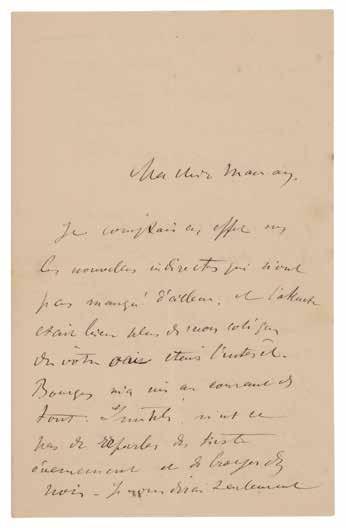 Ma chère maman,
Je comptais en effet sur
les nouvelles indirectes qui n'ont
pas manqué d'ailleurs, et l'attente
était bien plus de mon côté que
du vôtre
Bourges m'a mis au courant de
tout. Inutile n'est ce
pas de reparler du triste
évènement et de
mois - Je vous dirai seulement